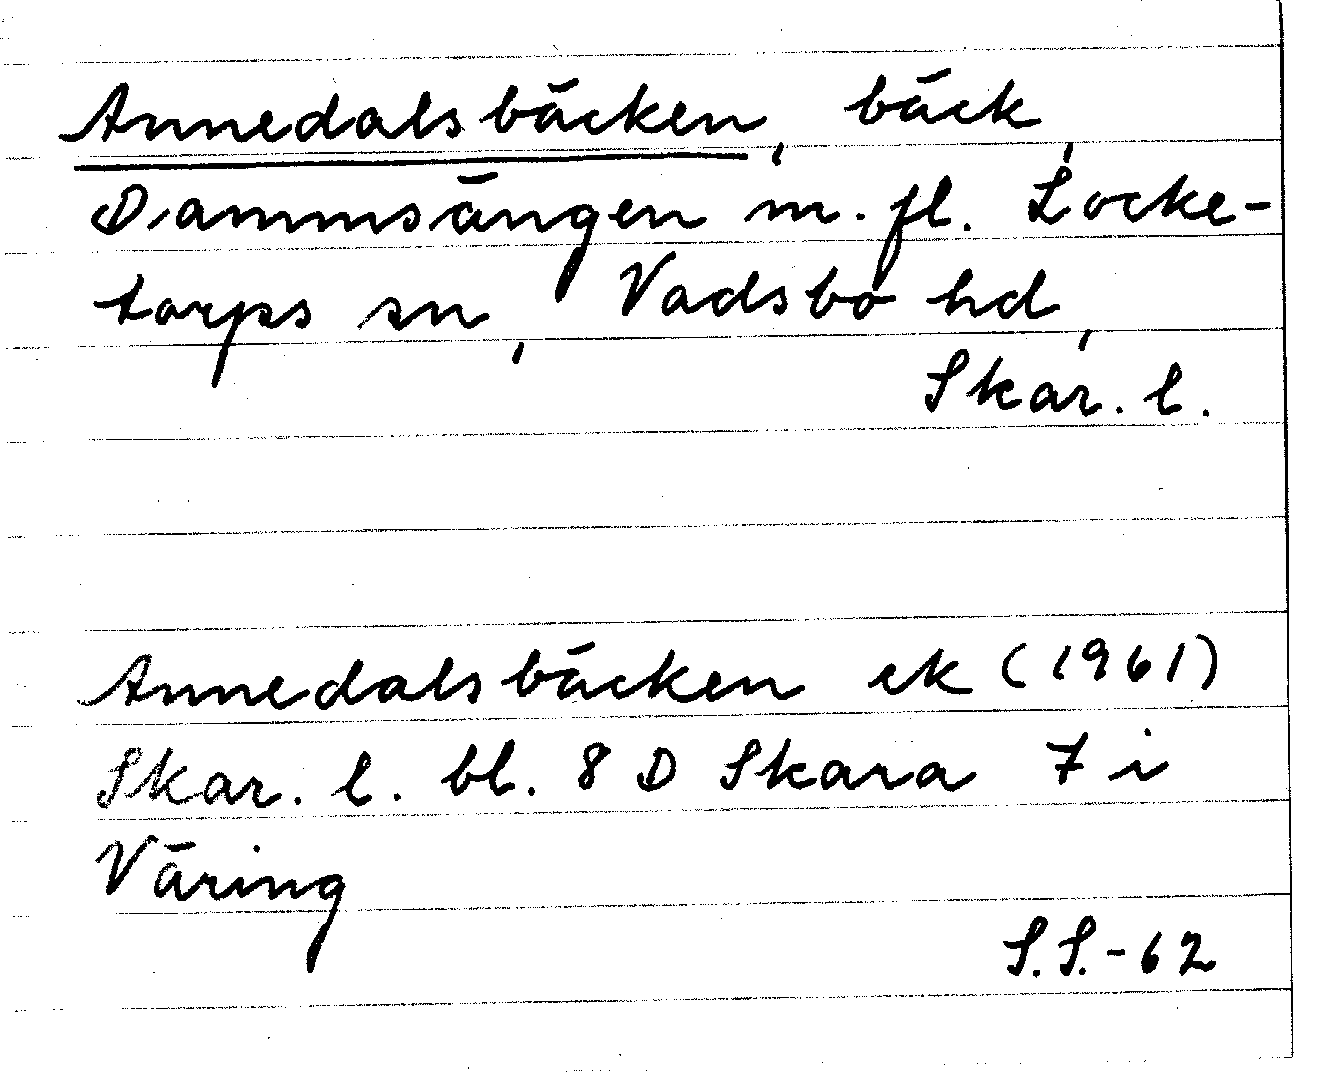 Annedalsbäcken, bäck,
Dammsängen m. fl. Locke-
torps sn, Vadsbo hd,
Skar. l.
Annedalsbäcken ek (1961)
Skar. l. bl. 8 D Skara 7 i
Väring
S.S.-62